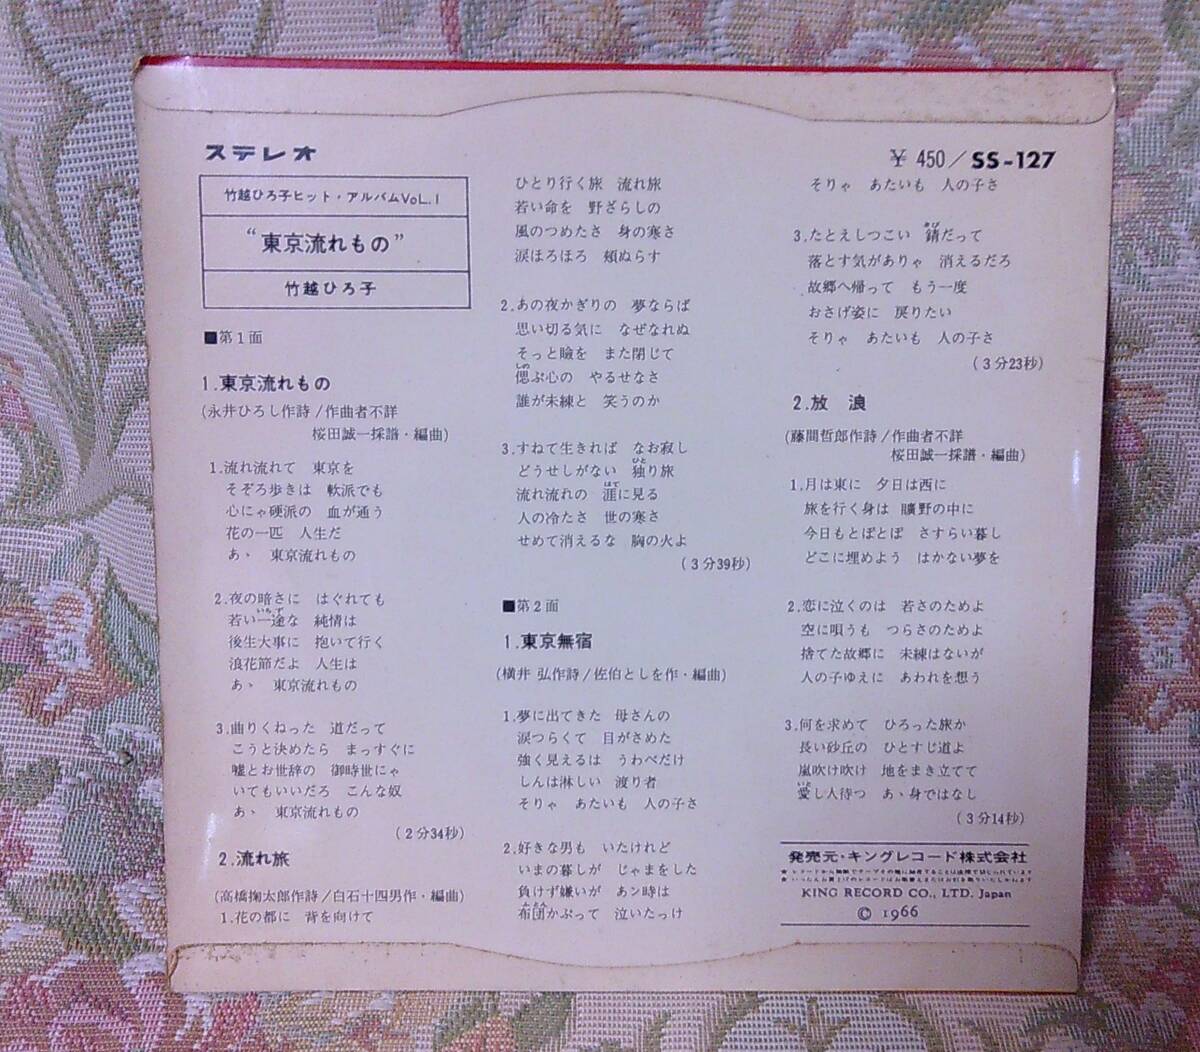 ステレオ
¥ 450/SS-127
竹越ひろ子ヒット・アルバムVoL.1
“東京流れもの”
竹越ひろ子
■第1面
1.東京流れもの
(永井ひろし作詩/作曲者不詳
桜田誠一採譜・編曲)
1.流れ流れて 東京を
そぞろ歩きは 軟派でも
心にゃ硬派の 血が通う
花の一匹 人生だ
あゝ 東京流れもの
2.夜の暗さに はぐれても
若い一途な 純情は
後生大事に 抱いて行く
浪花節だよ 人生は
あゝ 東京流れもの
3.曲りくねった 道だって
こうと決めたら まっすぐに
嘘とお世辞の 御時世にゃ
いてもいいだろ こんな奴
あゝ 東京流れもの
(2分34秒)
2.流れ旅
(高橋掬太郎作詩/白石十四男作・編曲)
1.花の都に 背を向けて
ひとり行く旅 流れ旅
若い命を 野ざらしの
風のつめたさ 身の寒さ
涙ほろほろ 頬ぬらす
2.あの夜かぎりの 夢ならば
思い切る気に なぜなれぬ
そっと瞼を また閉じて
偲ぶ心の やるせなさ
誰が未練と 笑うのか
3.すねて生きれば なお寂し
どうせしがない 独り旅
流れ流れの 涯に見る
人の冷たさ 世の寒さ
せめて消えるな 胸の火よ
(3分39秒)
■第2面
1.東京無宿
(横井 弘作詩/佐伯としを作・編曲)
1.夢に出てきた 母さんの
涙つらくて 目がさめた
強く見えるは うわべだけ
しんは淋しい 渡り者
そりゃ あたいも 人の子さ
2.好きな男も いたけれど
いまの暮しが じゃまをした
負けず嫌いが あン時は
布団かぶって 泣いたっけ
そりゃ あたいも 人の子さ
3.たとえしつこい 錆だって
落とす気がありゃ 消えるだろ
故郷へ帰って もう一度
おさげ姿に 戻りたい
そりゃ あたいも 人の子さ
(3分23秒)
2.放 浪
(藤間哲郎作詩/作曲者不詳
桜田誠一採譜・編曲)
1.月は東に 夕日は西に
旅を行く身は 曠野の中に
今日もとぼとぼ さすらい暮し
どこに埋めよう はかない夢を
2.恋に泣くのは 若さのためよ
空に唄うも つらさのためよ
捨てた故郷に 未練はないが
人の子ゆえに あわれを想う
3.何を求めて ひろった旅か
長い砂丘の ひとすじ道よ
嵐吹け吹け 地をまき立てて
愛し人待つ あゝ身ではなし
(3分14秒)
発売元・キングレコード株式会社
KING RECORD CO., LTD. Japan
© 1966